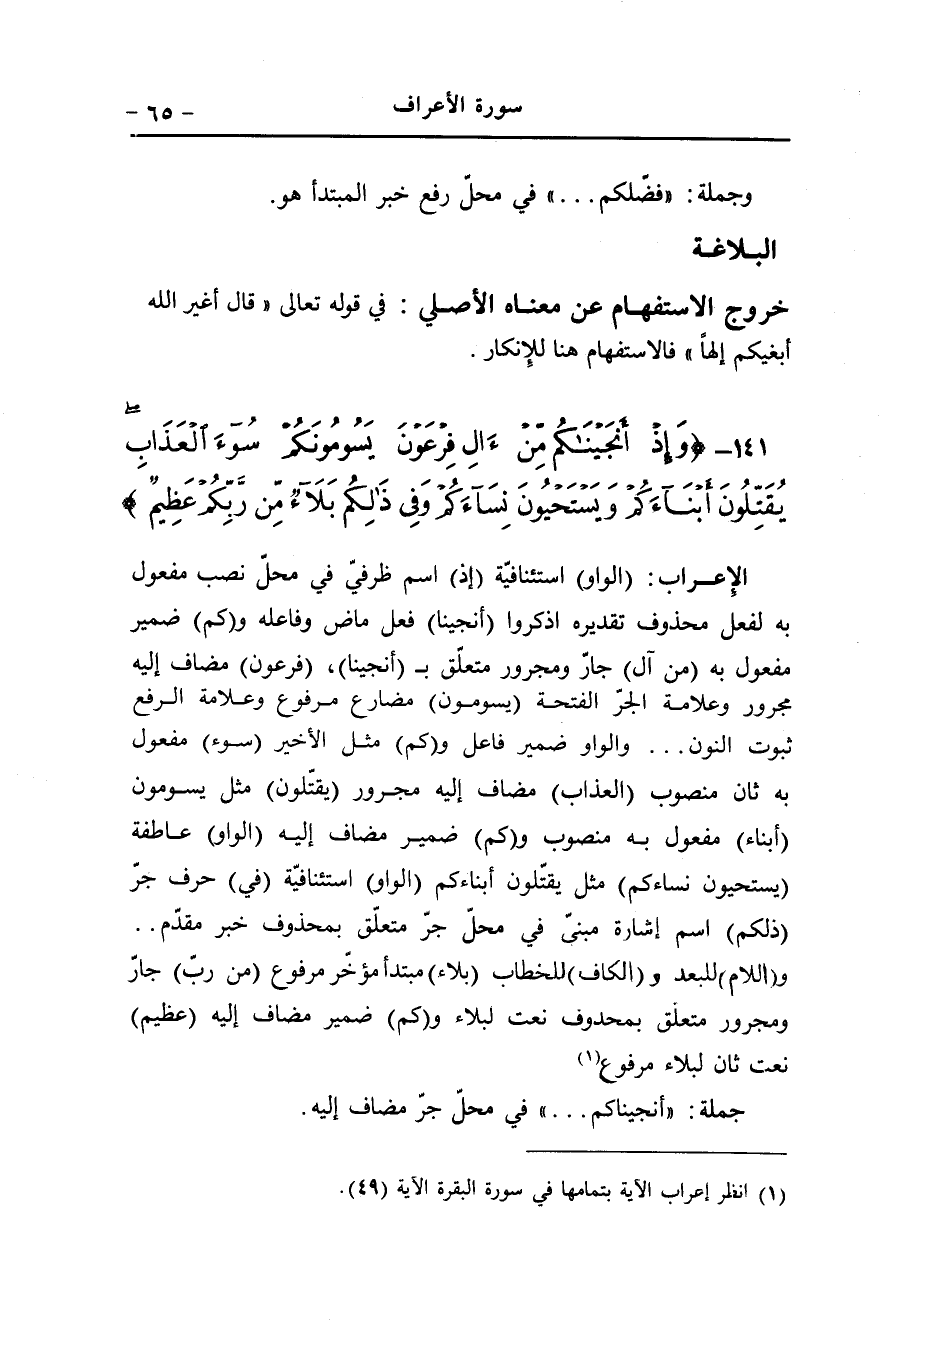 سورة الأعراف - ٦٥ -
وجملة: «فضّلكم...» في محلّ رفع خبر المبتدأ هو.
البـلاغـة
خروج الاستفهـام عن معنـاه الأصـلي : في قوله تعالى « قال أغير الله
أبغيكم إلهاً » فالاستفهام هنا للإنكار .
١٤١ـ ﴿وَإِذْ أَنجَيْنَـٰكُم مِّنْ ءَالِ فِرْعَوْنَ يَسُومُونَكُمْ سُوٓءَ ٱلْعَذَابِ ۖ
يُقَتِّلُونَ أَبْنَآءَكُمْ وَيَسْتَحْيُونَ نِسَآءَكُمْ وَفِى ذَٰلِكُم بَلَآءٌ مِّن رَّبِّكُمْ عَظِيمٌ﴾
الإعـراب: (الواو) استئنافيّة (إذ) اسم ظرفيّ في محلّ نصب مفعول
به لفعل محذوف تقديره اذكروا (أنجينا) فعل ماض وفاعله و(كم) ضمير
مفعول به (من آل) جارّ ومجرور متعلّق بـ (أنجينا)، (فرعون) مضاف إليه
مجرور وعلامـة الجرّ الفتحـة (يسومـون) مضارع مـرفوع وعـلامة الـرفع
ثبوت النون... والواو ضمير فاعل و(كم) مثـل الأخير (سـوء) مفعول
به ثان منصوب (العذاب) مضاف إليه مجـرور (يقتّلون) مثل يسـومون
(أبناء) مفعول بـه منصوب و(كم) ضميـر مضاف إليـه (الواو) عـاطفة
(يستحيون نساءكم) مثل يقتّلون أبناءكم (الواو) استئنافيّة (في) حرف جرّ
(ذلكم) اسم إشارة مبنيّ في محلّ جرّ متعلّق بمحذوف خبر مقدّم..
و(اللام)للبعد و (الكاف)للخطاب (بلاء)مبتدأ مؤخّر مرفوع (من ربّ) جارّ
ومجرور متعلّق بمحذوف نعت لبلاء و(كم) ضمير مضاف إليه (عظيم)
نعت ثان لبلاء مرفوع(١)
جملة: «أنجيناكم...» في محلّ جرّ مضاف إليه.
(١) انظر إعراب الآية بتمامها في سورة البقرة الآية (٤٩).